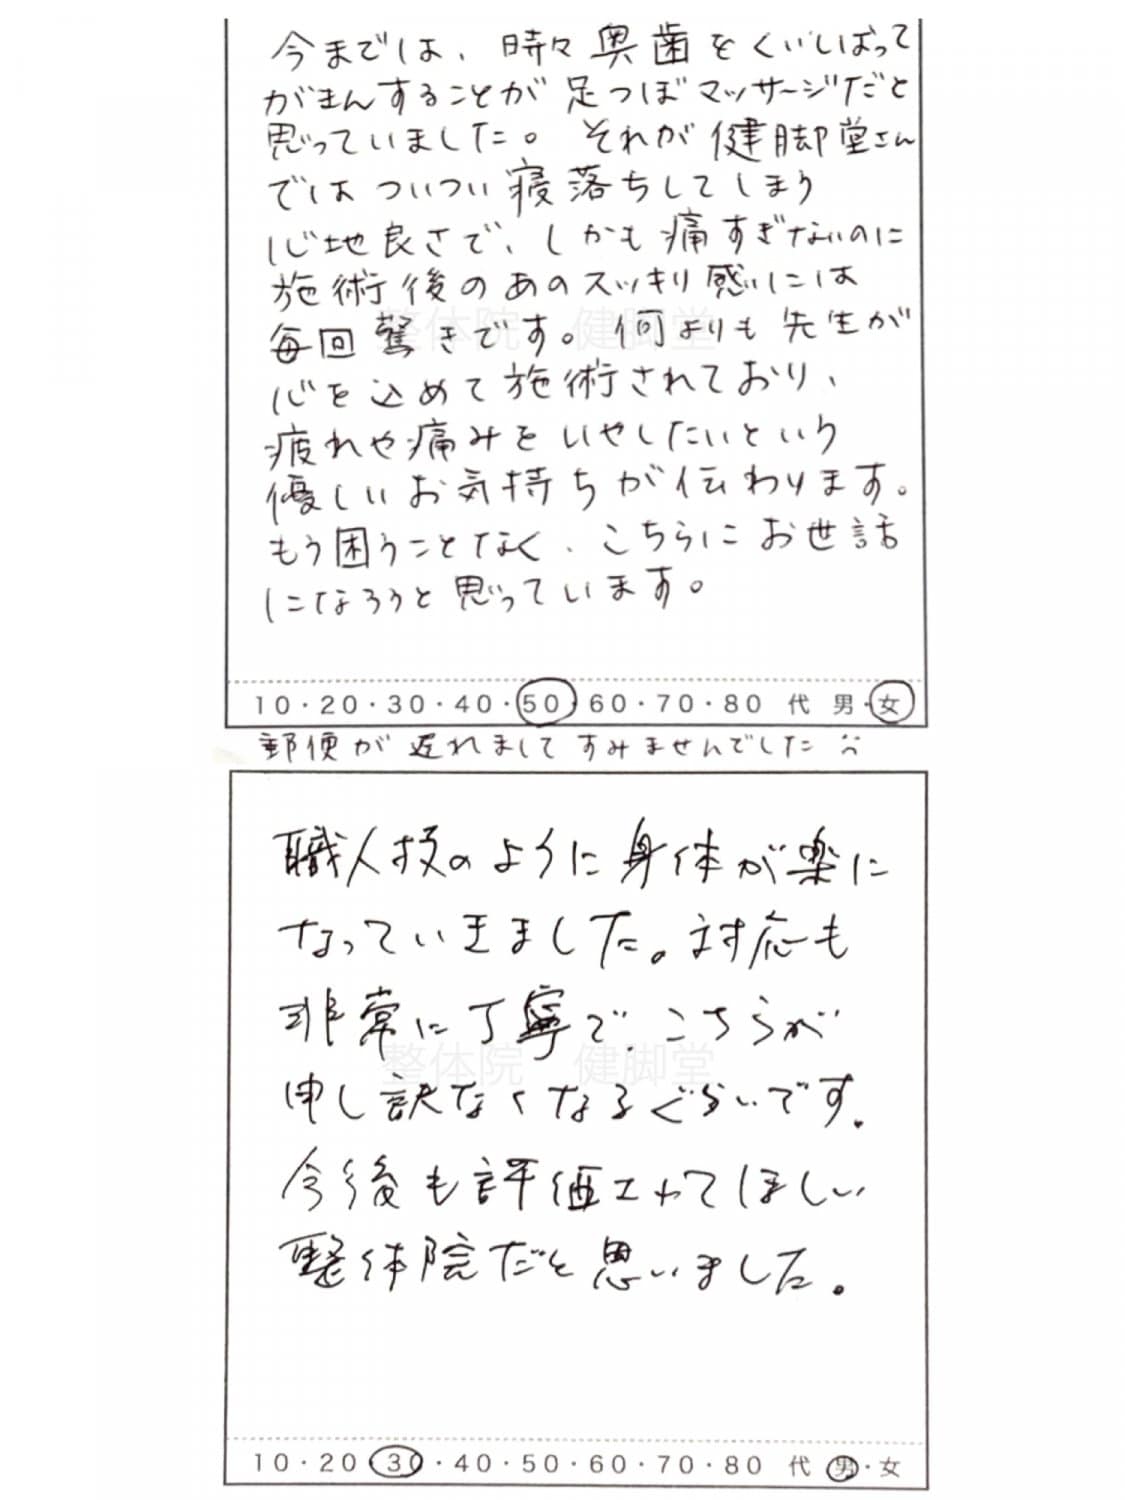 今までは、時々奥歯をくいしばって
がまんすることが足つぼマッサージだと
思っていました。それが健脚堂さん
ではついつい寝落ちしてしまう
心地良さで、しかも痛すぎないのに
施術後のあのスッキリ感には
毎回驚きです。何よりも先生が
心を込めて施術されており、
疲れや痛みをいやしたいという
優しいお気持ちが伝わります。
もう困うことなく、こちらにお世話
になろうと思っています。
10・20・30・40・50・60・70・80 代 男・女
郵便が遅れましてすみませんでした
職人技のように身体が楽に
なっていきました。対応も
非常に丁寧で、こちらが
申し訳なくなるぐらいです。
今後も評価されてほしい
整体院だと思いました。
10・20・30・40・50・60・70・80 代 男・女
整体院 健脚堂
整体院 健脚堂